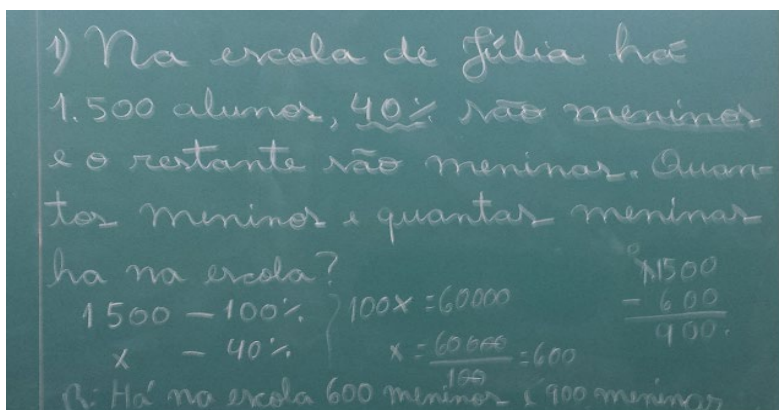 1) Na escola de Júlia há
1.500 alunos, 40% são meninos
e o restante são meninas. Quan-
tos meninos e quantas meninas
ha na escola?
1500 - 100%
x - 40%
100x = 60000
x = 60000/100 = 600
1500
- 600
900.
R: Há na escola 600 meninos e 900 meninas